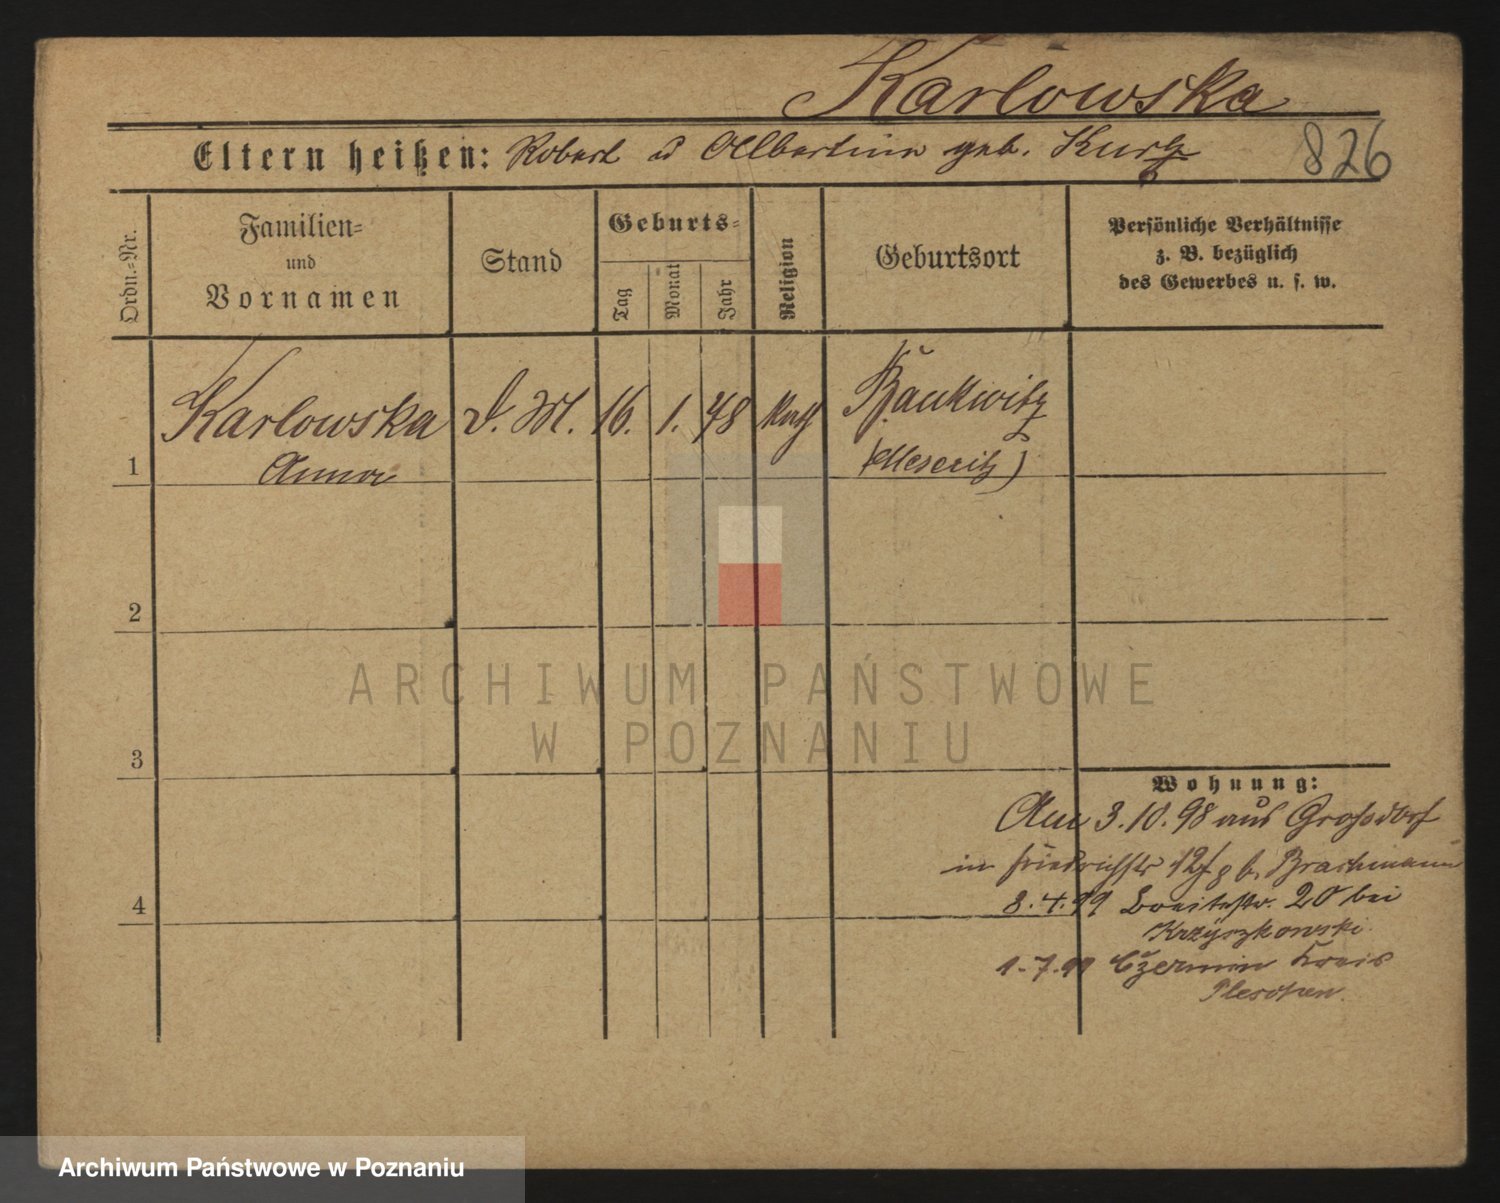 Karlowska
Eltern heißen: Robert u Albertine geb. Kurtz
826
Ordn.-Nr.
Familien-
und
Vornamen
Stand
Geburts-
Tag
Monat
Jahr
Religion
Geburtsort
Persönliche Verhältnisse
z. B. bezüglich
des Gewerbes u. s. w.
Karlowska D. M. 16. 1. 78 kath
1 Anna (Meseritz)
2
ARCHIWUM PAŃSTWOWE
W POZNANIU
3
Wohnung:
Am 3.10.98 aus Großdorf
in Friedrichstr 12 b. Brachmann
4
8.4.99 Breitestr. 20 bei
Krzyszkowski
1.7.99 Czermin Kreis
Pleschen.
Archiwum Państwowe w Poznaniu